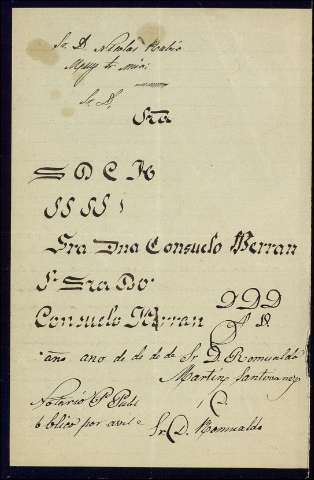 Sr. D. Nicolas Rubio
Muy Sr. mio:
Sr. D.
Sra
S D C K
SS SS
Sra Dna Consuelo Berran
Sra Da
Consuelo Berran DDD
D.
ano ano de de de de Sr D. Romualdo
Martin Santomanez
Notario P. Publi
blico por
Sr. D. Romualdo